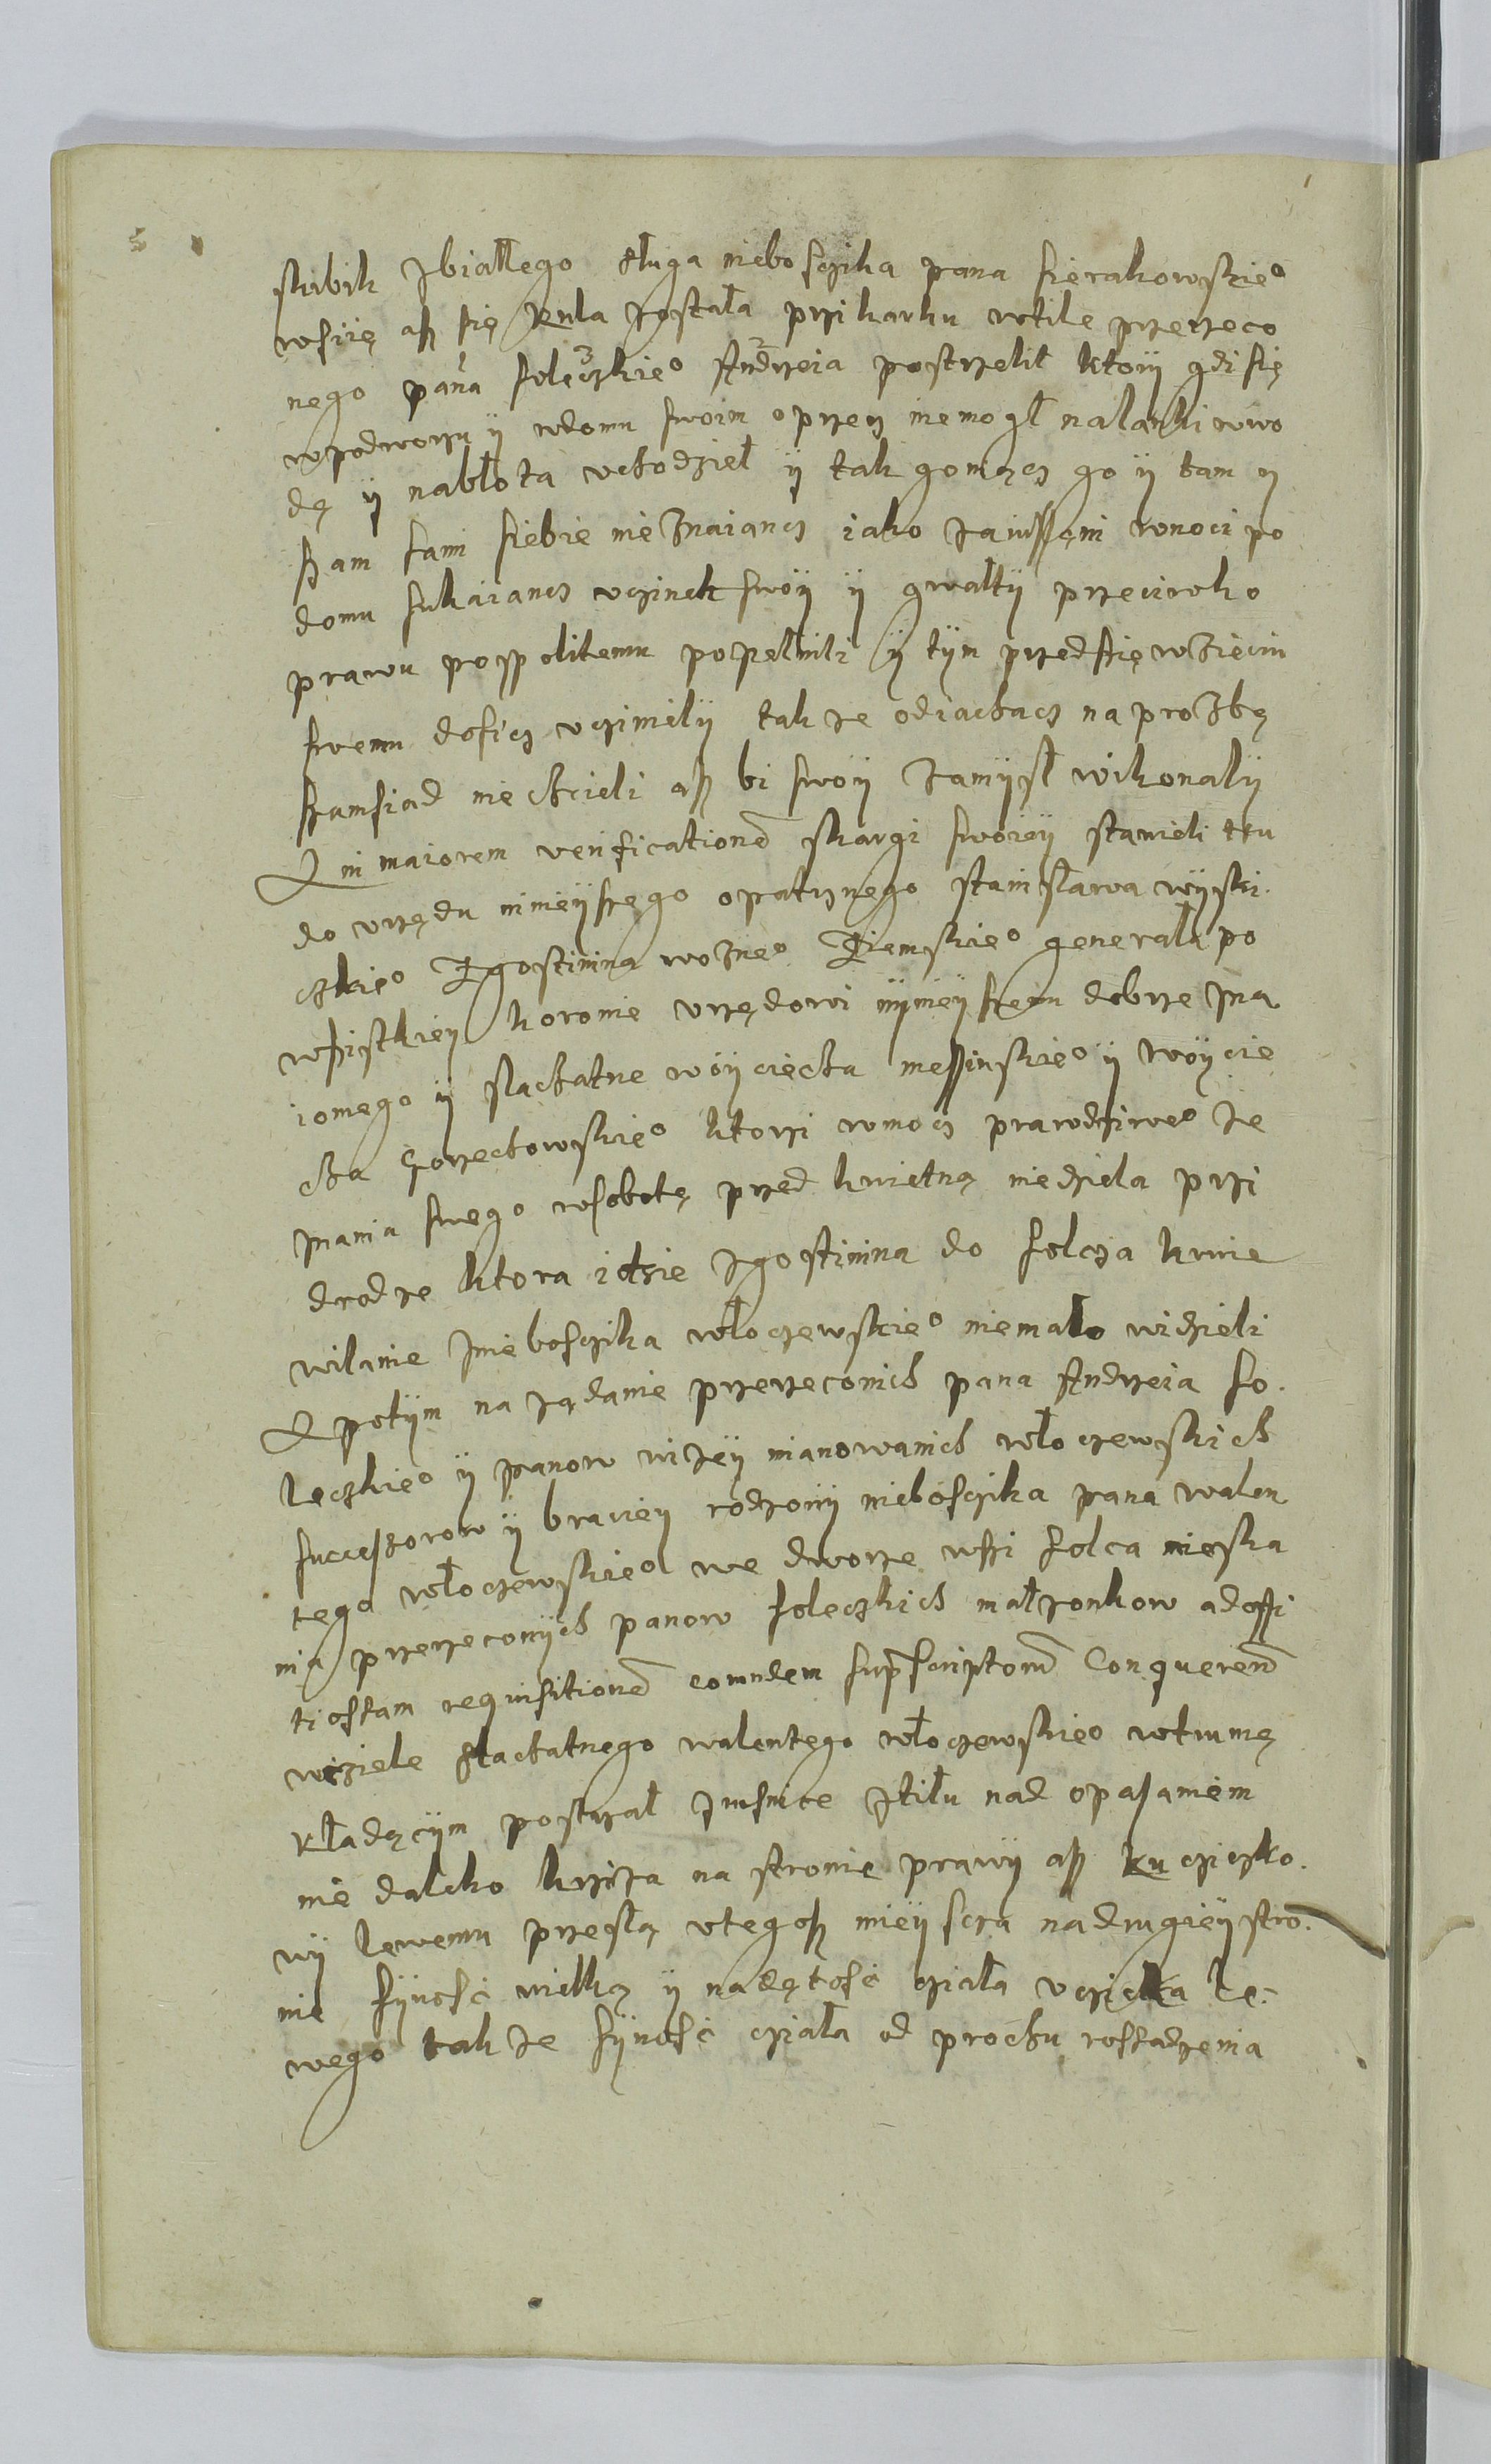 skibik zbiałłego sługa niebosczika pana sierakowskie°
wsiię asz się kula została przi karku wtile przerzeco
nego pana solęczkie° Andrzeia postrzelił ktorÿ gdi się
wpodworzu ÿ wdomu swoim oprzecz niemogł nalanki wwo
dę ÿ nabłota vchodzieł ÿ tak goniącz go ÿ tam y
szam sami siebie nieznaiancz iako zaiuszęni wnoci po
domu sukaiancz vczinek swoÿ ÿ gwałtÿ przeciwko
prawu pospolitemu popełnili ÿ tÿm przedsięwzieciu
swemu dosicz vczinielÿ takze odiachacz na proźbę
szamsiad niechcieli asz bi swoÿ zamÿsł wikonalÿ
Et in maiorem verificatione skargi swoieÿ stawieli tu
do vrzędu ninieÿszego opatrznego stanisława wÿski
czkie° zgostinina wozne° ziemskie° generała po
wszistkieÿ koronie vrzędowi nÿnieÿszemu dobrze zna
iomego ÿ slachatne woÿciecha messinskie° ÿ woÿcie
cha gorzechowskie° ktorzi wmocz prawdziwe° ze
znania swego wsobotę przed kwietną niedziela przi
drodze ktora idzie zgostinina do solcza krwie
wilanie zniebosczika włoczewskie° niemało widzieli
Et potÿm na ządanie przerzeconich pana Andrzeia so
leczkie° ÿ panow wizeÿ mianowanich włoczewskich
successorow ÿ bracieÿ rodzonÿ niebosczika pana walen
tego włoczewskie° we dworze wsi solca mieska
nia przerzeconÿch panow soleczkich małzonkow ad offi
tiossam requisitione eorundem suprascriptorum Conqueren
wcziele slachatnego walentego włoczewskie° wtrunię
kładęcÿm postrzał zrusnice ztiłu nad opasaniem
nie daleko krziza na stronie prawÿ asz ku cziczko
wÿ lewemu przeslą vtegosz mieÿscza nadrugieÿ stro
nie sÿnosć wielką ÿ nadętosć cziała vczicka le
wego takze sÿnosć cziała od prochu rossadzenia